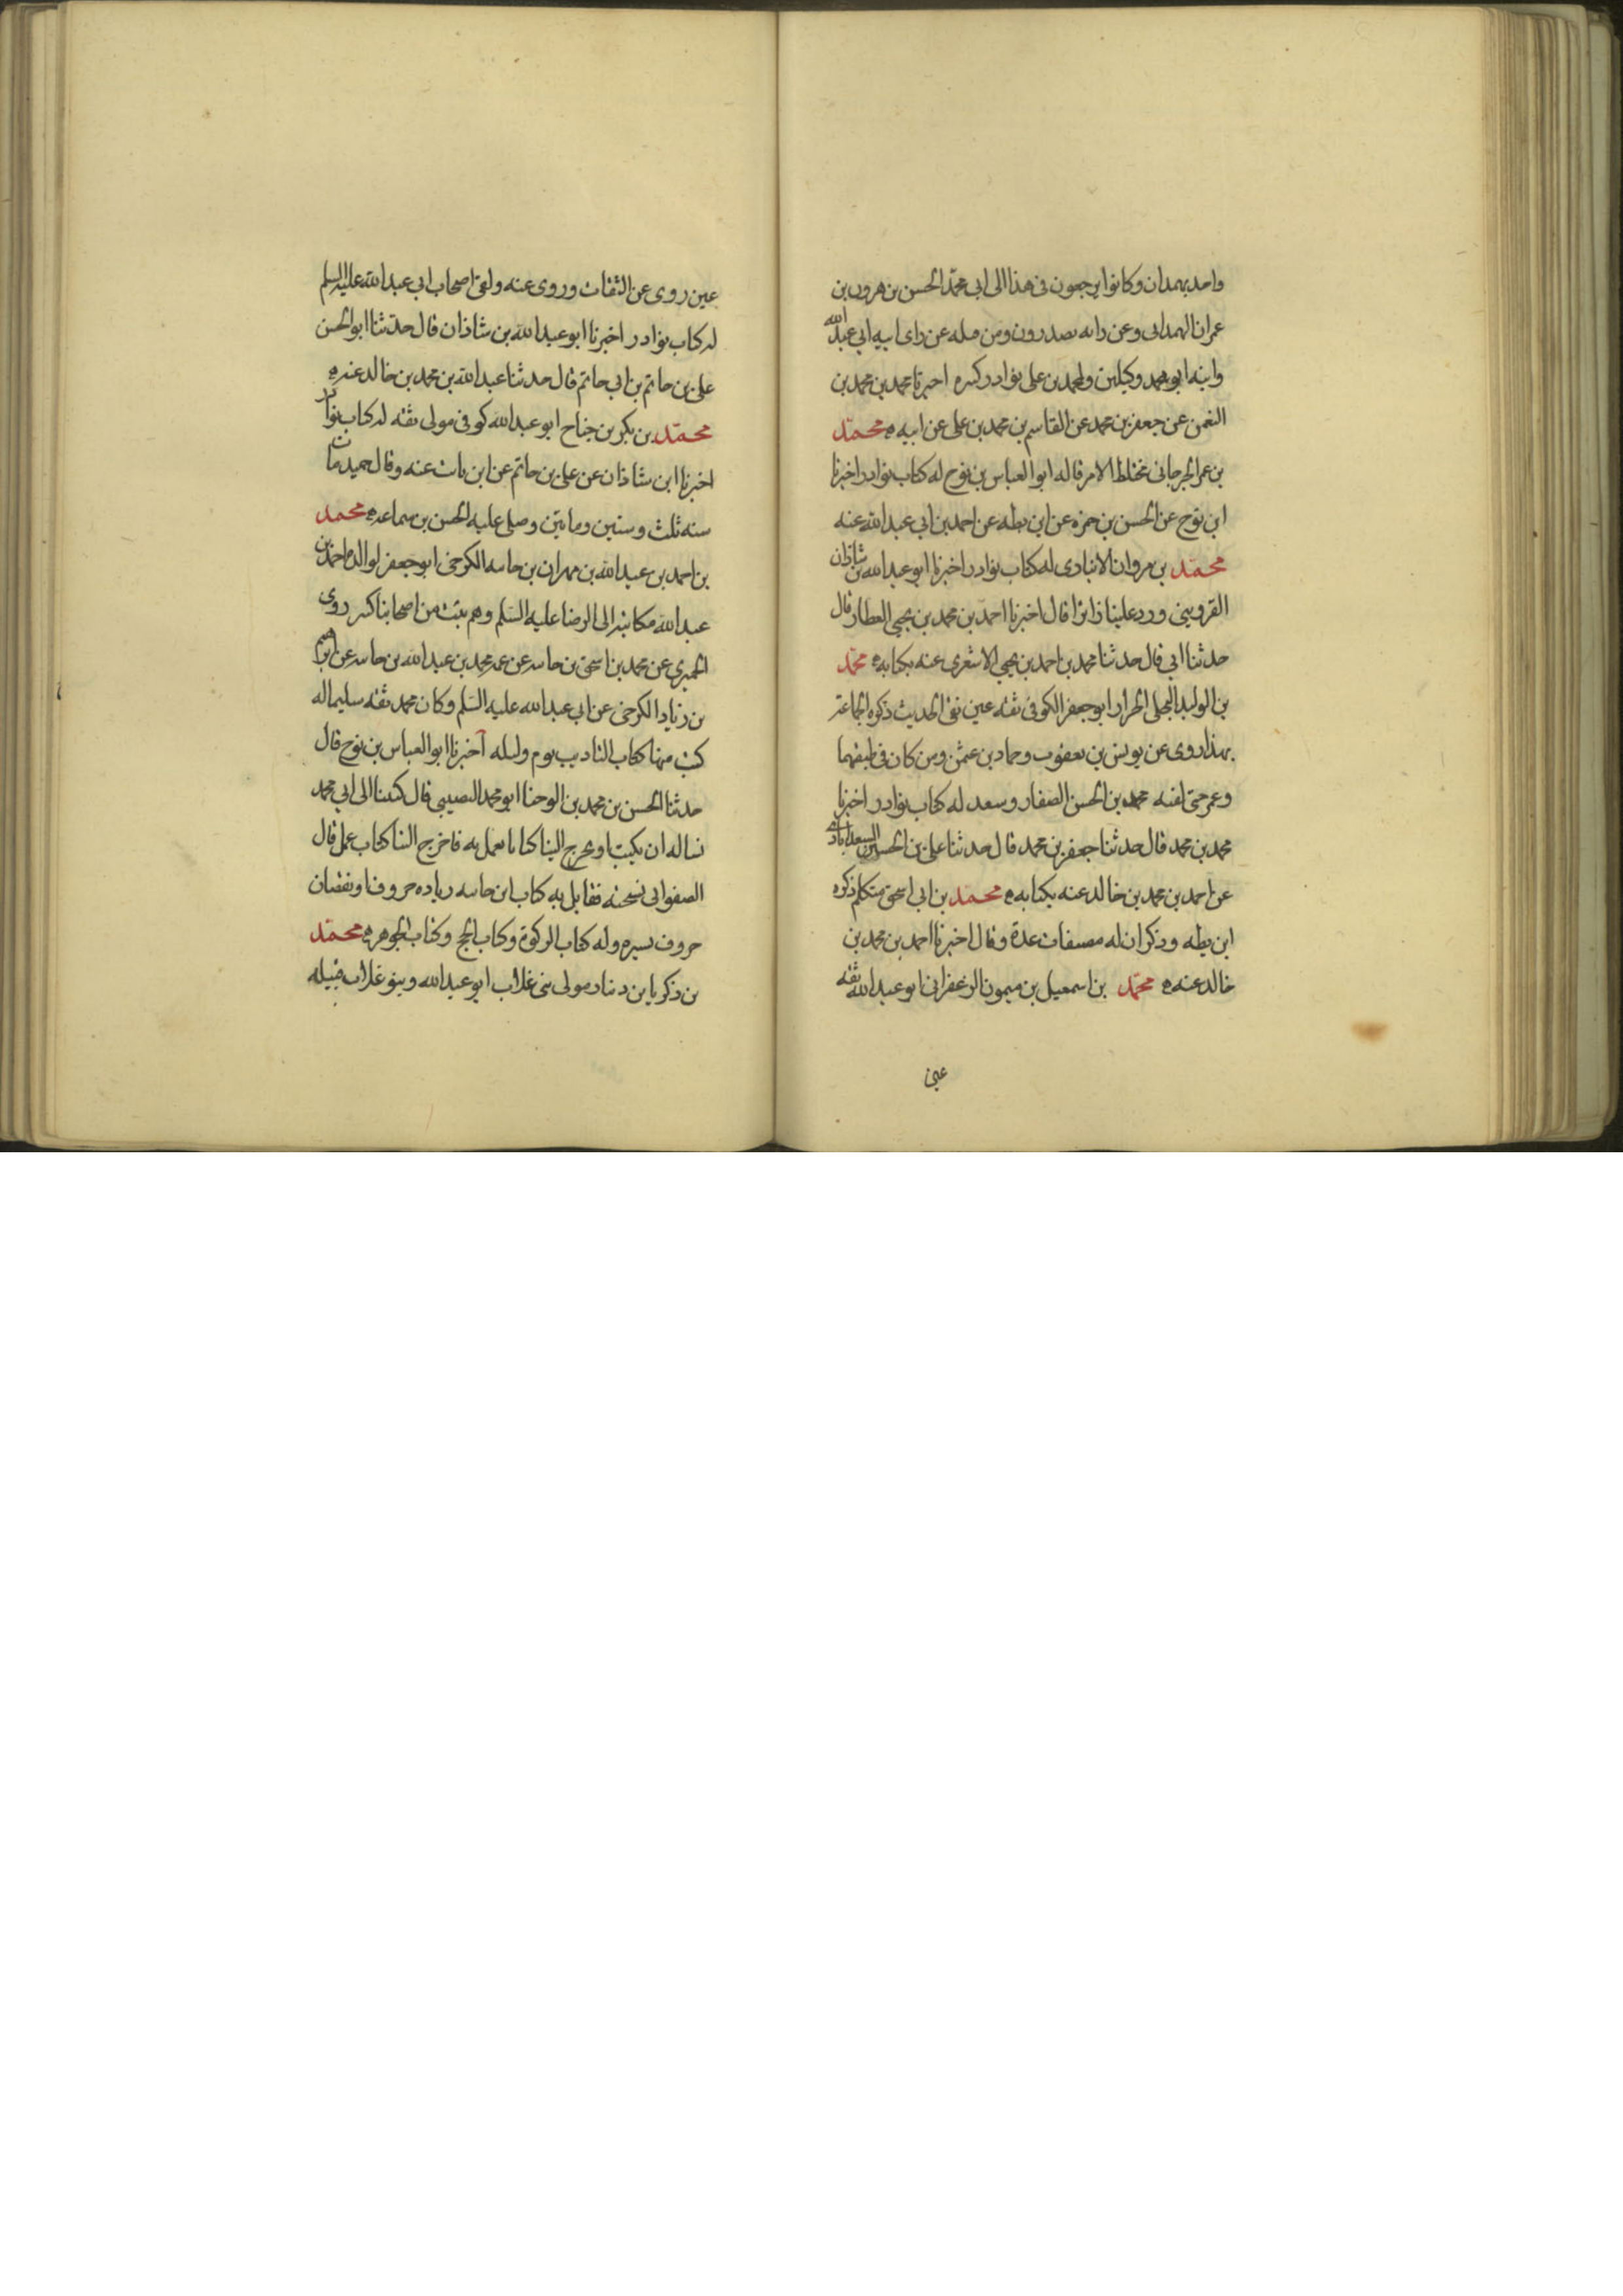 واحد بهمدان وكانوا يرجعون فى هذا الى ابى محمد الحسن بن هرون بن
عمران الهمدانى وعن رايه يصدرون ومن قبله عن راى ابيه ابى عبدالله
وابنه ابو محمد وكيلين ولمحمد بن على نوادر كبيره اخبرنا محمد بن محمد بن
النعمن عن جعفر بن محمد عن القاسم بن محمد بن على عن ابيه ه محمد
بن عمر الجرجانى مختلط الامر قاله ابو العباس بن نوح له كتاب نوادر اخبرنا
ابن نوح عن الحسن بن حمزه عن ابن بطه عن احمد بن ابى عبدالله عنه
محمد بن مروان الانبارى له كتاب نوادر اخبرنا ابو عبدالله بن شاذان
القزوينى ورد علينا زائرا قال اخبرنا احمد بن محمد بن يحيى العطار قال
حدثنا ابى قال حدثنا محمد بن احمد بن يحيى الاشعرى عنه بكتابه ه محمد
بن الوليد البجلى الخزاز ابو جعفر الكوفى ثقه عين نقى الحديث ذكره الجماعة
بهذا روى عن يونس بن يعقوب وحماد بن عثمن ومن كان فى طبقتهما
وعمر حتى لقيه محمد بن الحسن الصفار وسعد له كتاب نوادر اخبرنا
محمد بن محمد قال حدثنا جعفر بن محمد قال حدثنا على بن الحسين السعدابادى
عن احمد بن محمد بن خالد عنه بكتابه ه محمد بن ابى اسحق متكلم ذكره
ابن بطه وذكر ان له مصنفات عدة وقال اخبرنا احمد بن محمد بن
خالد عنه ه محمد بن اسمعيل بن ميمون الزعفرانى ابو عبدالله ثقه
عين
عين روى عن الثقات وروى عنه ولقى اصحاب ابى عبدالله عليه السلم
له كتاب نوادر اخبرنا ابو عبدالله بن شاذان قال حدثنا ابو الحسن
على بن حاتم بن ابى حاتم قال حدثنا عبدالله بن محمد بن خالد عنه ه
محمد بن بكر بن جناح ابو عبدالله كوفى مولى ثقه له كتاب نوادر
اخبرنا ابن شاذان عن على بن حاتم عن ابن ثابت عنه وقال حميد مات
سنه ثلث وستين ومايتين وصلى عليه الحسن بن سماعه ه محمد
بن احمد بن عبدالله بن مهران بن خانبه الكرخى ابو جعفر لوالده احمد بن
عبدالله مكاتبة الى الرضا عليه السلم وهم بيت من اصحابنا كبير روى
الحميرى عن محمد بن اسحق بن خانبه عن عمه محمد بن عبدالله بن خانبه عن ابراهيم
بن زياد الكرخى عن ابى عبدالله عليه السلم وكان محمد ثقه سليما له
كتب منها كتاب التاديب يوم وليله اخبرنا ابو العباس بن نوح قال
حدثنا الحسن بن محمد بن الوجنا ابو محمد النصيبى قال كتبنا الى ابى محمد
نساله ان يكتب او يخرج الينا كتابا نعمل به فاخرج الينا كتاب عمل قال
الصفوانى نسخته فقابل به كتاب ابن خانبه زياده حروف او نقصان
حروف يسيره وله كتاب الزكوة وكتاب الحج وكتاب الجوهر ه محمد
بن زكريا بن دينار مولى بنى غلاب ابو عبدالله وبنو غلاب قبيله